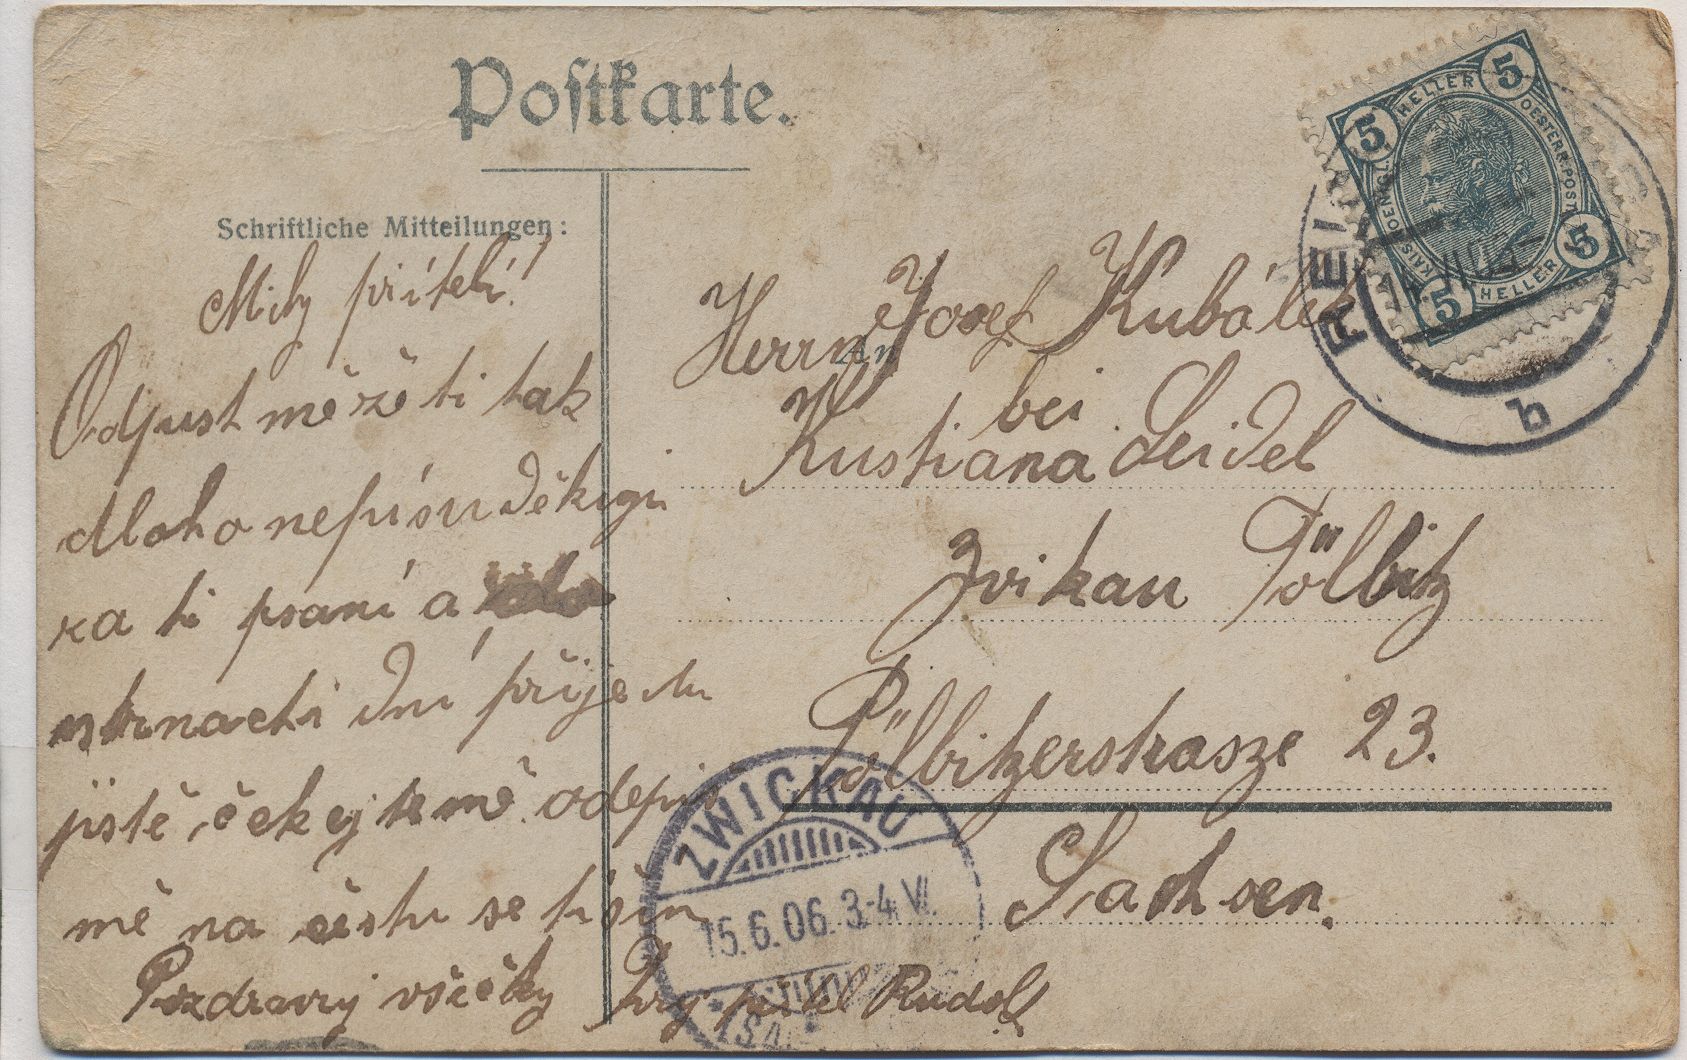 Postkarte.
Schriftliche Mitteilungen:
Milý příteli!
Odpusť mě že ti tak
dloho nepísu děkuji
za ti psaní a
strnacti dní přijedu
jistě, čekej te mě odepiš
mě na čestu se tišim
Pozdravuj všecky Tvůj přítel Rudolf
An
Herrn Josef Kubálek
bei
Kustiana Seidel
Zvikau Pölbitz
Pölbitzerstrasze 23.
Sachsen.
5 HELLER 5
5 HELLER 5
KAIS. KOEN. OESTERR. POST
REI
b
ZWICKAU
15.6.06. 3-4 V.
(SA